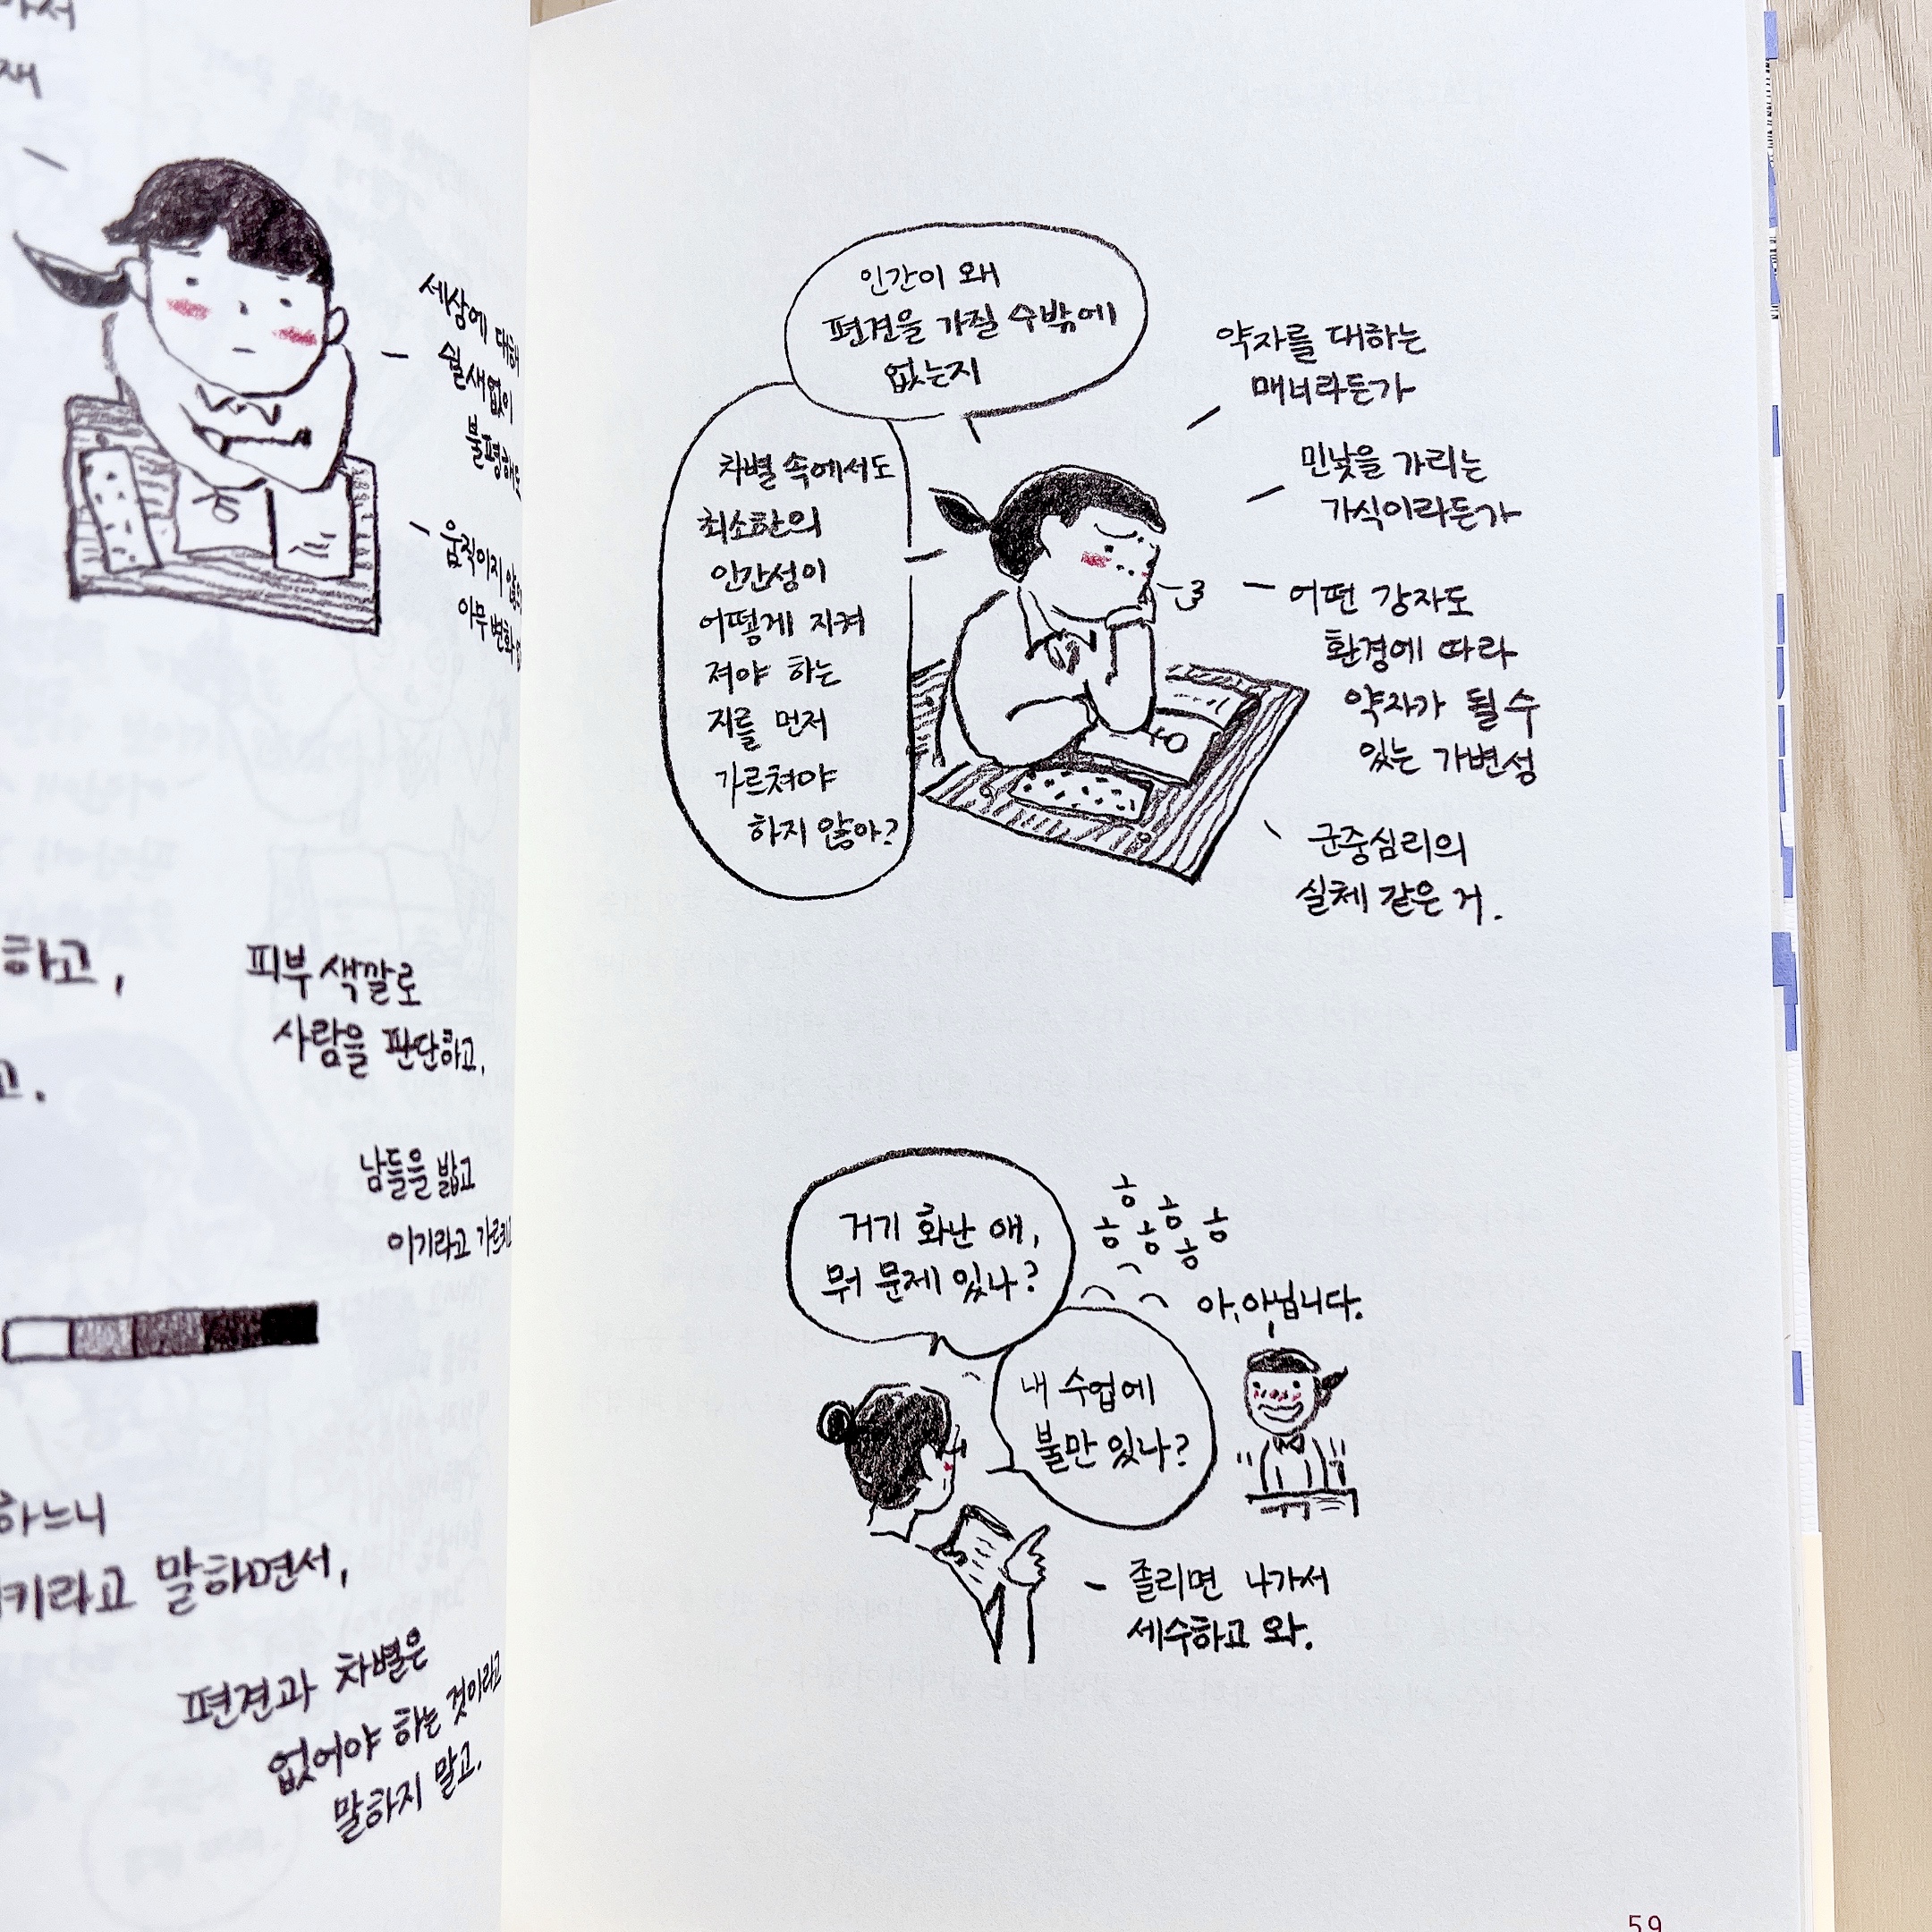 세상에 대해
쉴새없이
움직이지
아무 변화
하고,
피부 색깔로
사람을 판단하고,
남들을 밟고
이기라고
하느니
키라고 말하면서,
편견과 차별은
없어야 하는 것이라고
말하지 말고.
인간이 왜
편견을 가질 수밖에
없는지
차별 속에서도
최소한의
인간성이
어떻게 지켜
져야 하는
지를 먼저
가르쳐야
하지 않아?
약자를 대하는
매너라든가
민낯을 가리는
가식이라든가
어떤 강자도
환경에 따라
약자가 될 수
있는 가변성
군중심리의
실체 같은 거.
거기 화난 애,
뭐 문제 있나?
흥
흥
흥
흥
흥
흥
아, 아닙니다.
내 수업에
불만 있나?
졸리면 나가서
세수하고 와.
59